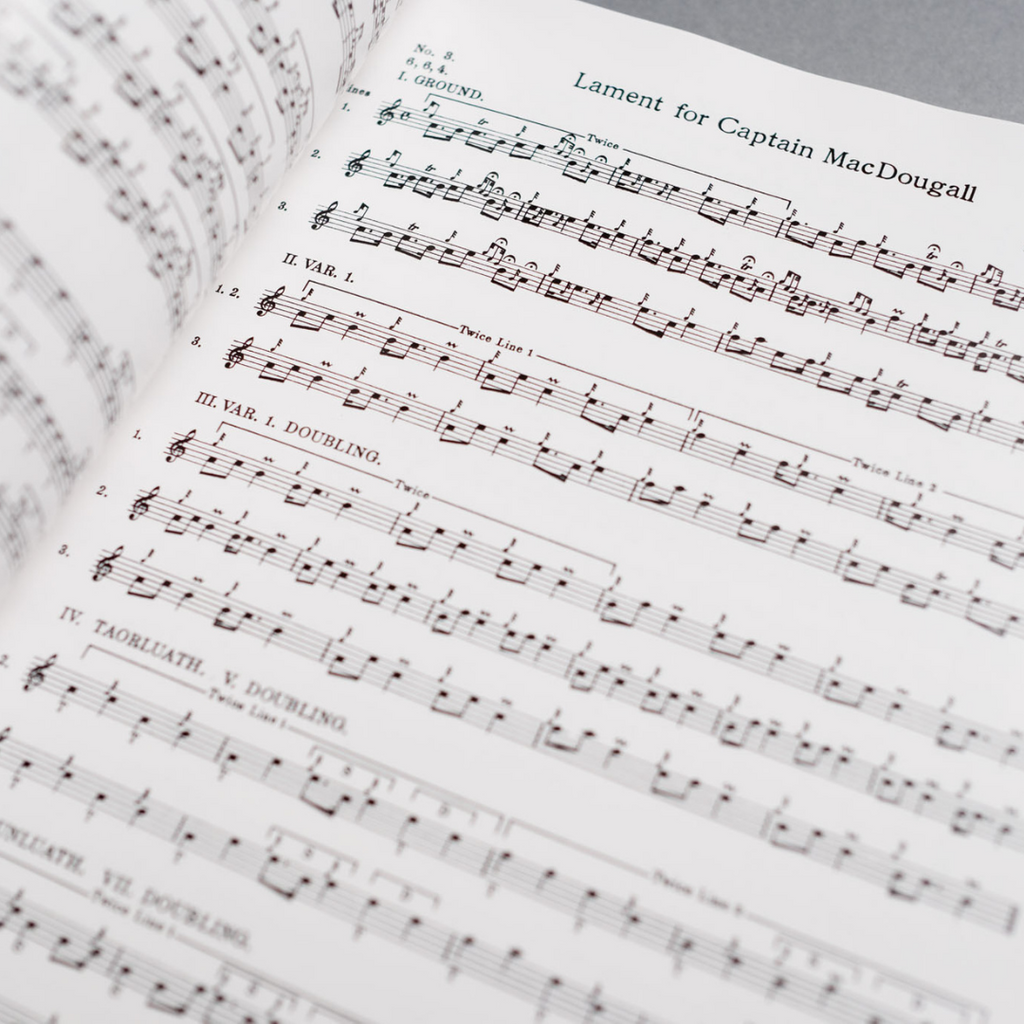 No. 3.
Lament for Captain MacDougall
6, 6, 4.
I. GROUND.
Twice
1.
2.
3.
II. VAR. 1.
Twice Line 1
Twice Line 2
1. 2.
3.
III. VAR. 1. DOUBLING.
Twice
1.
2.
3.
IV. TAORLUATH. V. DOUBLING.
Twice Line 1
Twice Line 2
VII. DOUBLING.
Twice Line 1